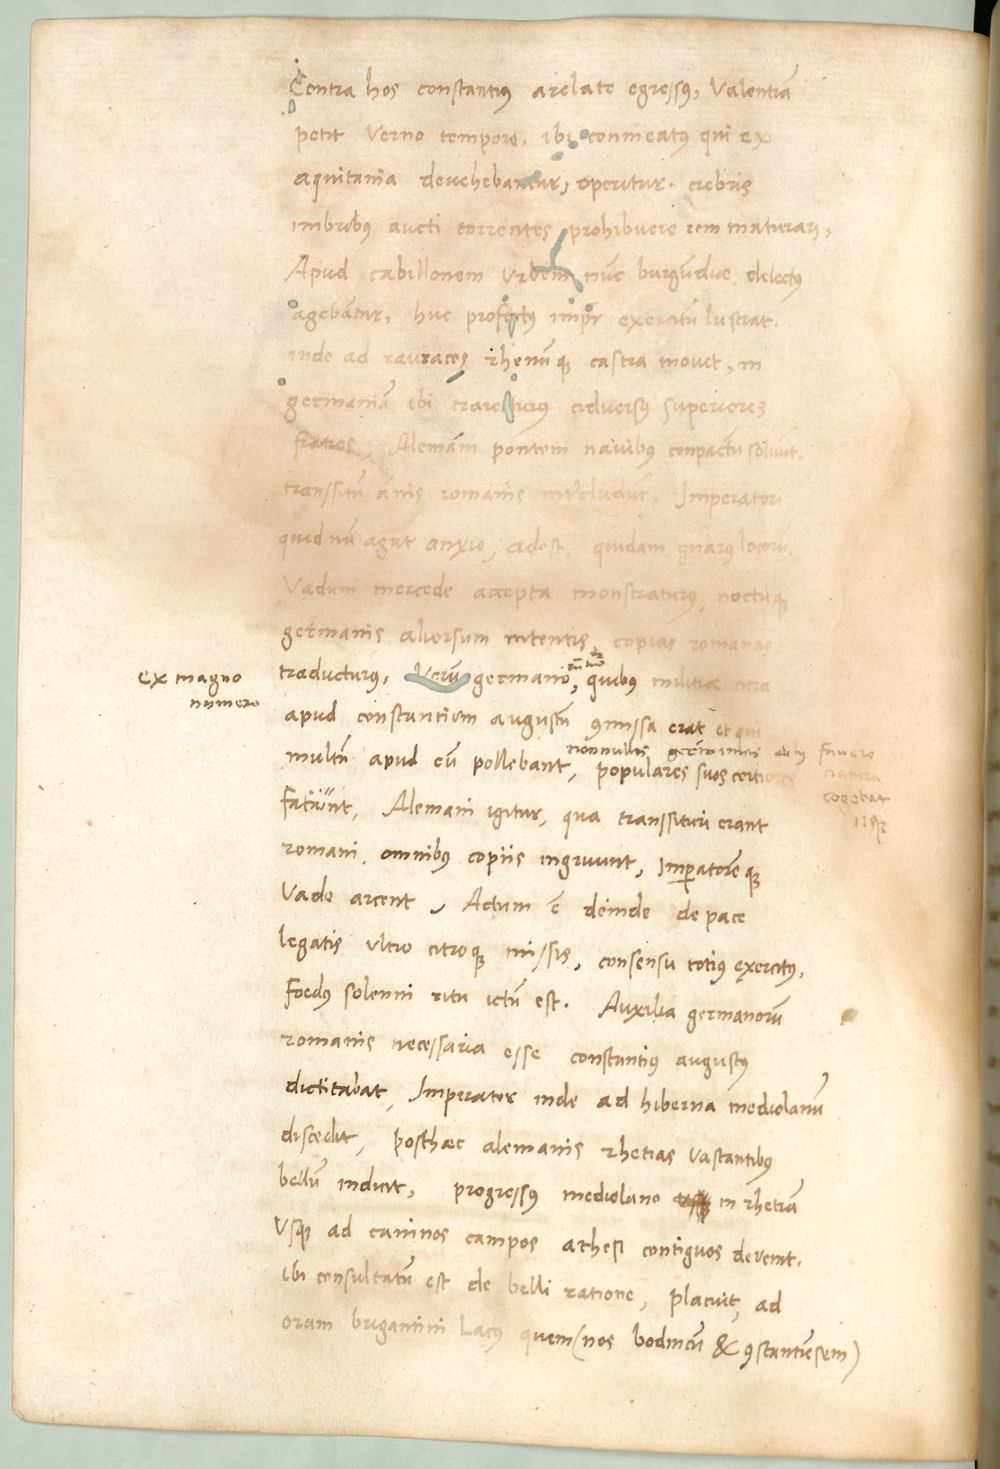 Contra hos constantius arelate egressus, Valentiā
petit Verno tempore, ibi conmeatus qui ex
aquitania devehebantur, operitur. crebris
imbribus aucti torrentes prohibuere rem maturari,
Apud cabillonem Urbem nūc burgūdiae, delectus
agebātur, huc profectus impr exercitū lustrat.
inde ad rauracos rhenūque castra movet, in
germaniā ibi traiecturus adversus superiores
fratres, Alemāni pontem navibus conpactū solvūt,
transsitū ānis romanis intercludūt. Imperatori
quid nā agat anxio, adest, quidam gnarus locorū,
Vadum mercede accepta monstraturus, noctuque
germanis aliorsum intentis, copias romanas
traducturus, Verū germani, quibus militiae cura
ex magno
numero
apud constantium augustū 9missa erat et qui
nonnullis germanis
favere
natura
cogebat
iisque
multū apud eū pollebant, populares suos certiores
faciunt, Alemani igitur, qua transsituri erant
romani, omnibus copiis ingruunt, imperatoreque
Vado arcent, Actum ē deinde de pace
legatis ultro citroque missis, consensu totius exercitus,
foedus solenni ritu ictū est. Auxilia germanorū
romanis necessaria esse constantius augustus
dictitabat, Imperator inde ad hiberna mediolanū
discedit, posthaec alemanis rhetias vastantibus
bellū indicit, progressus mediolano in rhetiā
Usque ad caninos campos athesi contiguos devenit.
ibi consultatū est de belli ratione, placuit, ad
oram brigantini Lacus quem (nos bodmicū & 9stantiēsem)